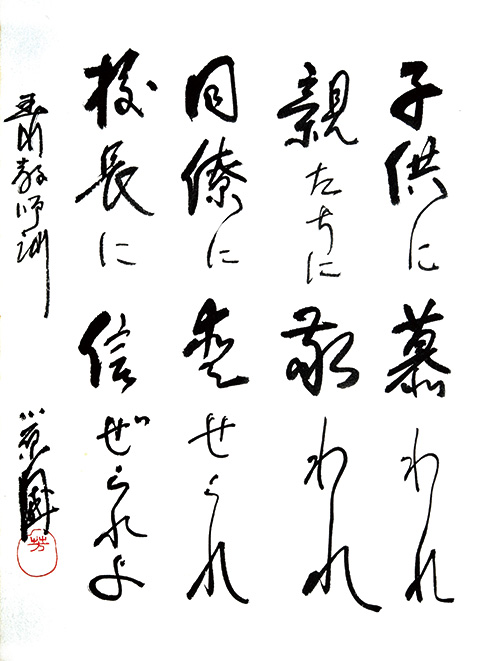 子供に慕われ
親たちに敬われ
同僚に愛せられ
校長に信ぜられよ
玉川教師訓
小原國
芳